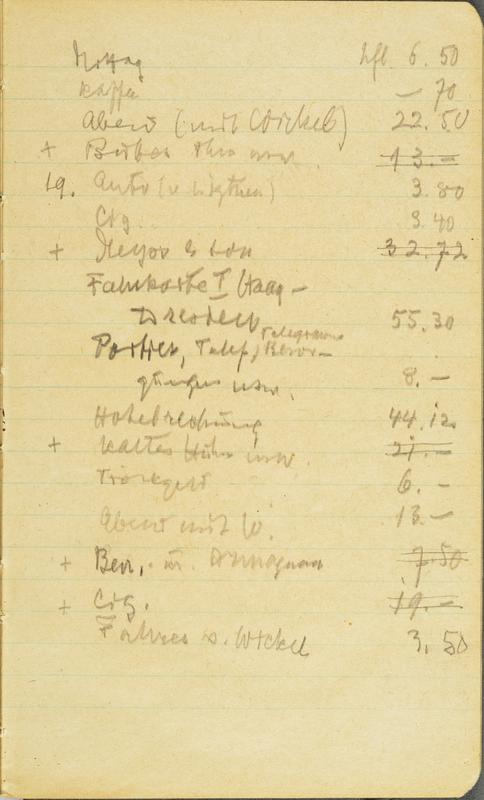 Mittag hfl. 6.50
Kaffe — 70
Abend (mit Wickel) 22.50
+ 13.—
19. Auto 3.80
Cig. 3.40
+ 32.72
Fahrkarte I Haag —
Dresden 55.30
Portier, Telef, Telegramm Besor-
gungen usw. 8.—
Hotelrechnung 44.12
+ kaltes Huhn usw. 21.—
Trinkgeld 6.—
Abend mit W. 13.—
+ 7.50
+ Cig. 19.—
Wickel 3.50